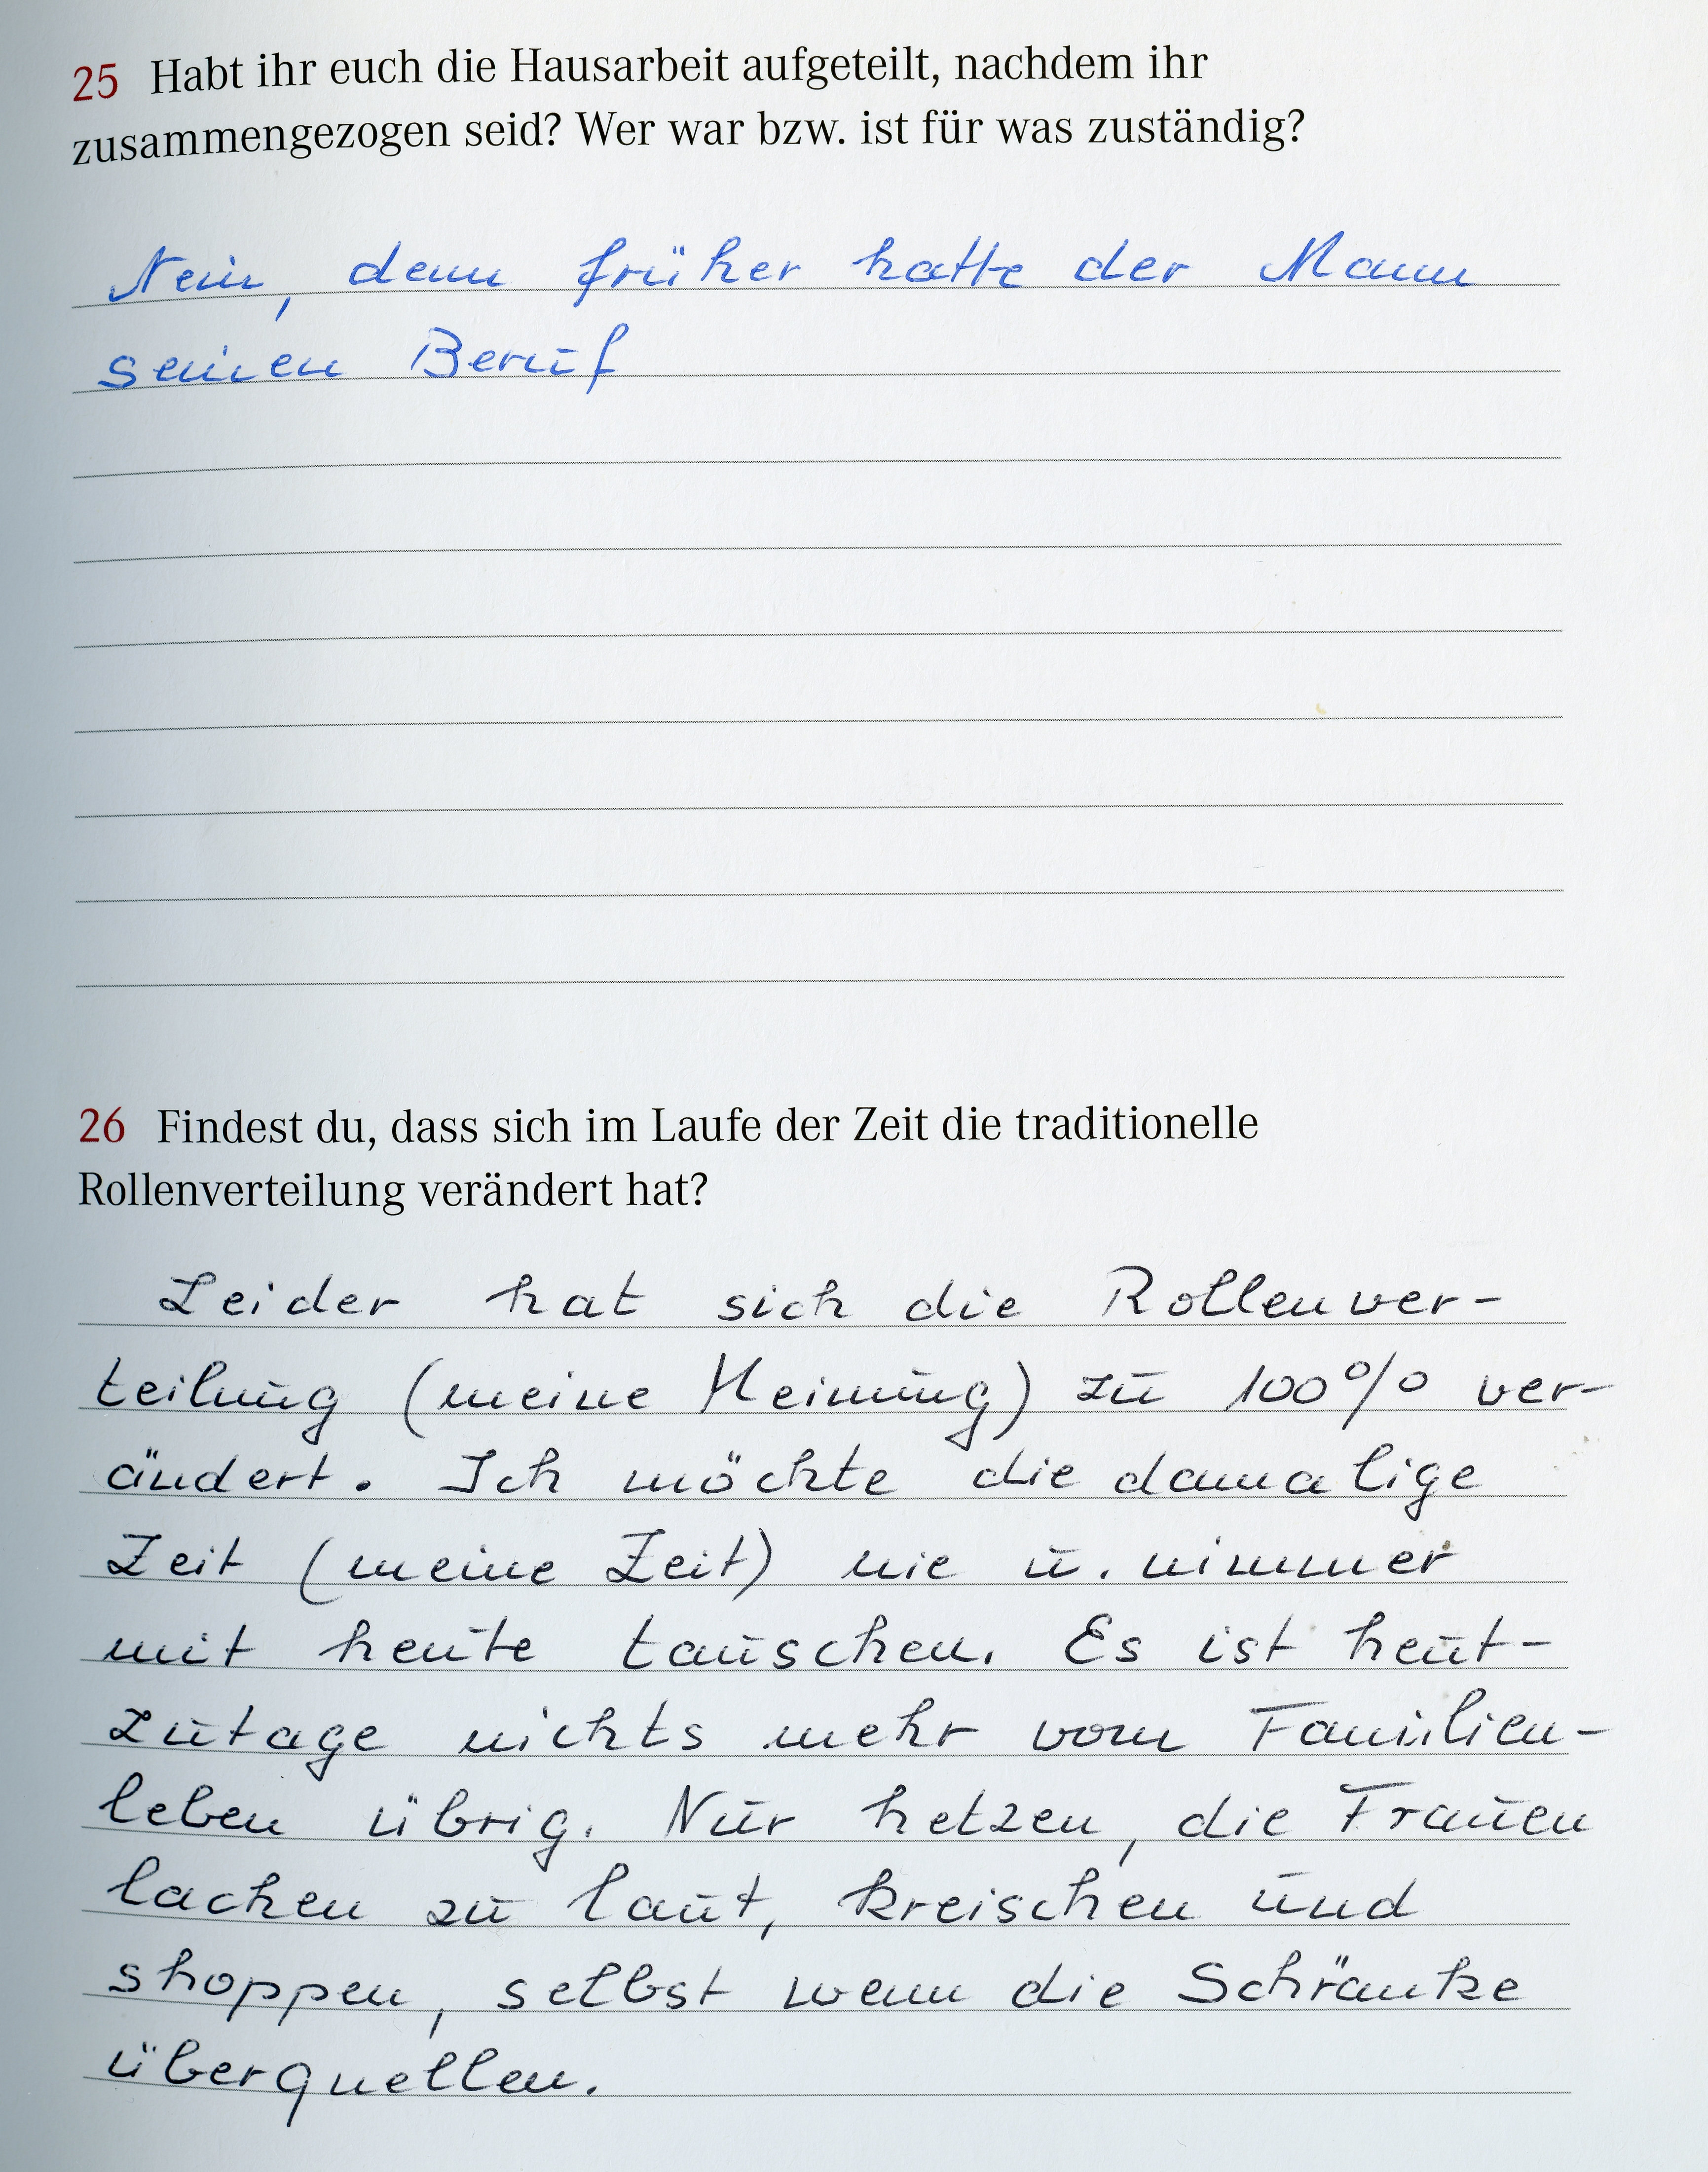 25 Habt ihr euch die Hausarbeit aufgeteilt, nachdem ihr
zusammengezogen seid? Wer war bzw. ist für was zuständig?
Nein, denn früher hatte der Mann
seinen Beruf
26 Findest du, dass sich im Laufe der Zeit die traditionelle
Rollenverteilung verändert hat?
Leider hat sich die Rollenver-
teilung (meine Meinung) zu 100% ver-
ändert. Ich möchte die damalige
Zeit (meine Zeit) nie u. nimmer
mit heute tauschen. Es ist heut-
zutage nichts mehr vom Familien-
leben übrig. Nur hetzen, die Frauen
lachen zu laut, kreischen und
shoppen, selbst wenn die Schränke
überquellen.